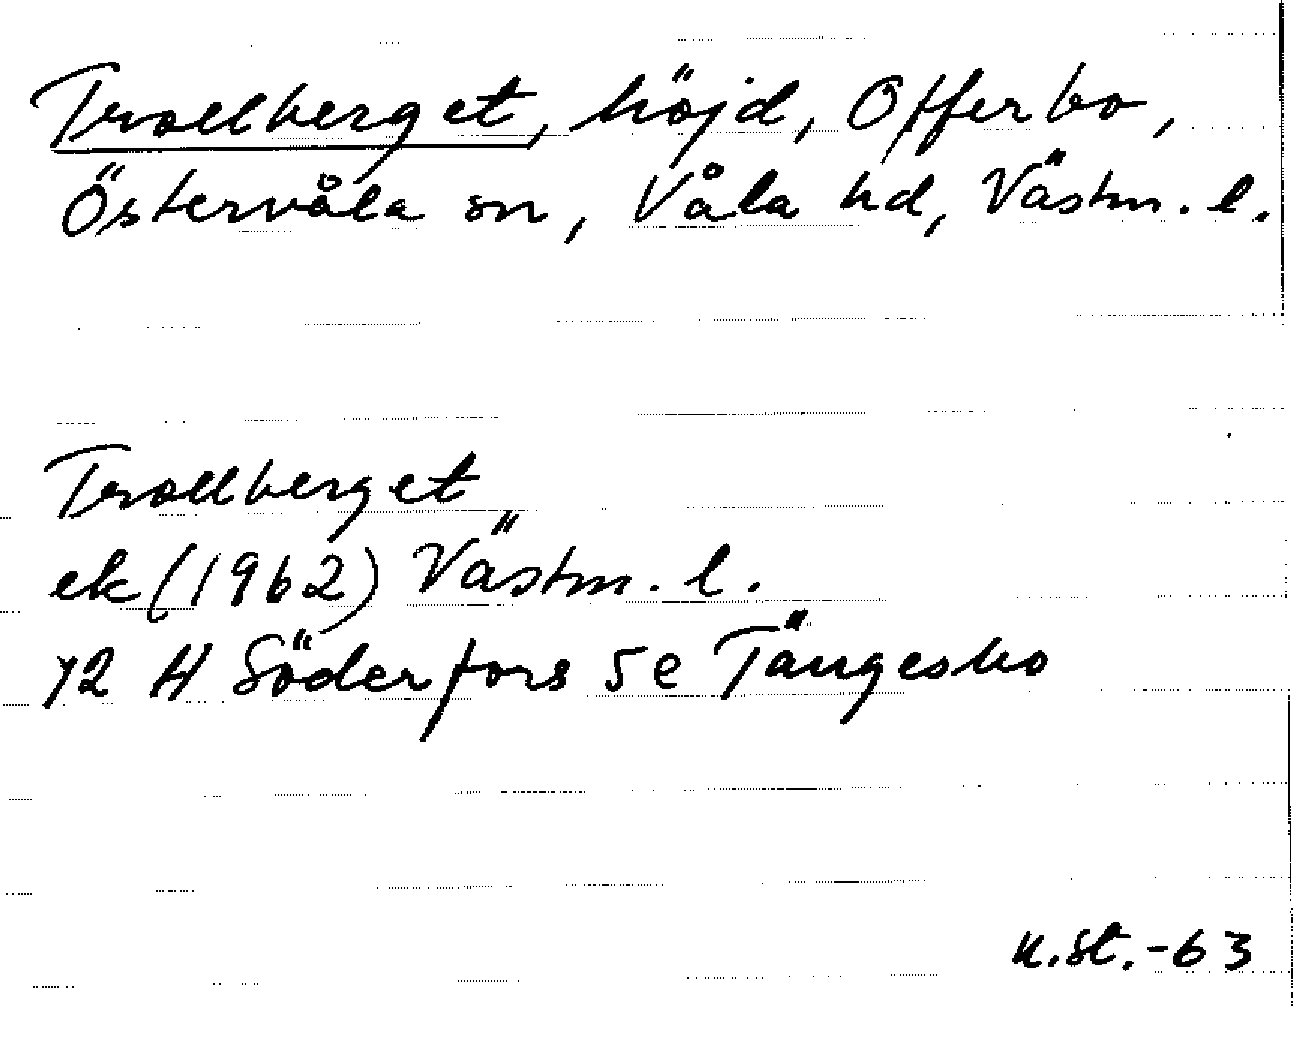 Trollberget, höjd, Offerbo,
Östervåla sn, Våla hd, Västm. l.
Trollberget
ek (1962) Västm. l.
12 H Söderfors 5e Tängesbo
u.St.-63